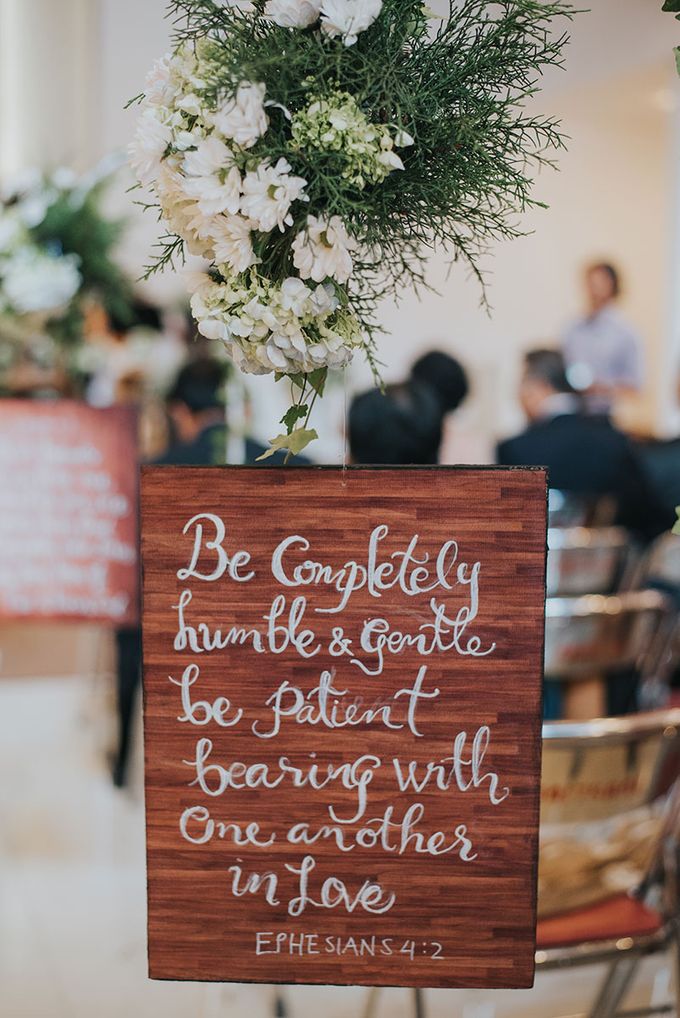 Be Completely
humble & Gentle
be patient
bearing with
One another
in Love
EPHESIANS 4:2